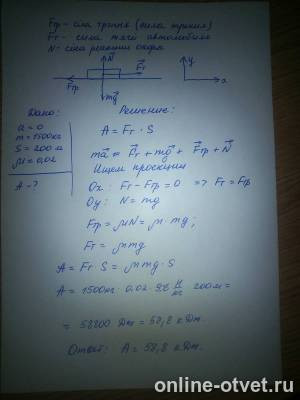 Fтр – сила трения (сила трения)
Fт – сила тяги автомобиля
N – сила реакции опоры
N
y
Fт
Fтр
x
mg
Дано:
a = 0
m = 1500кг
S = 200 м
μ = 0,02
A – ?
Решение:
A = Fт · S
ma = Fт + mg + Fтр + N
Ищем проекции
Ox: Fт – Fтр = 0 => Fт = Fтр
Oy: N = mg
Fтр = μN = μ · mg;
Fт = μmg
A = Fт · S = μmg · S
A = 1500кг · 0,02 · 9,8 Н/кг · 200м =
= 58800 Дж = 58,8 кДж.
Ответ: A = 58,8 кДж.
online-otvet.ru